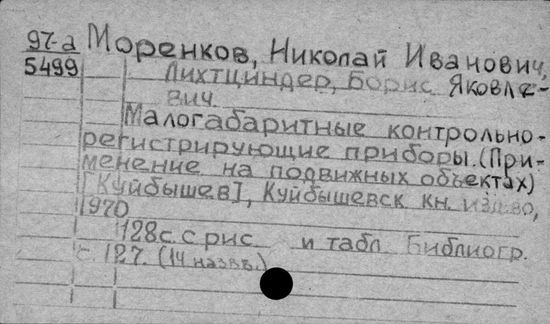 97-а Моренков, Николай Иванович,
5499 Лихтциндер, Борис Яковле-
вич
Малогабаритные контрольно-
регистрирующие приборы. (При-
менение на подвижных объектах)
[Куйбышев], Куйбышевск. кн. изд-во,
1970
128 с. с рис. и табл. Библиогр.
с. 127. (14 назв.)